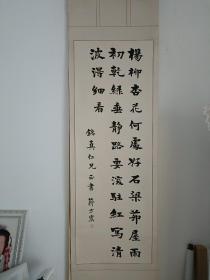 楊柳杏花何處好石梁茆屋雨
初乾綠垂靜路要深駐紅寫清
波得細看
錦真仁兄正書